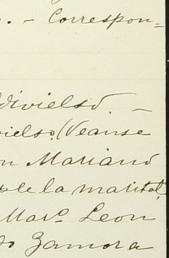 . – Correspon=
divielso –
vielso, (Veanse
on Mariano
de la marital
Marº Leon
do Zamora